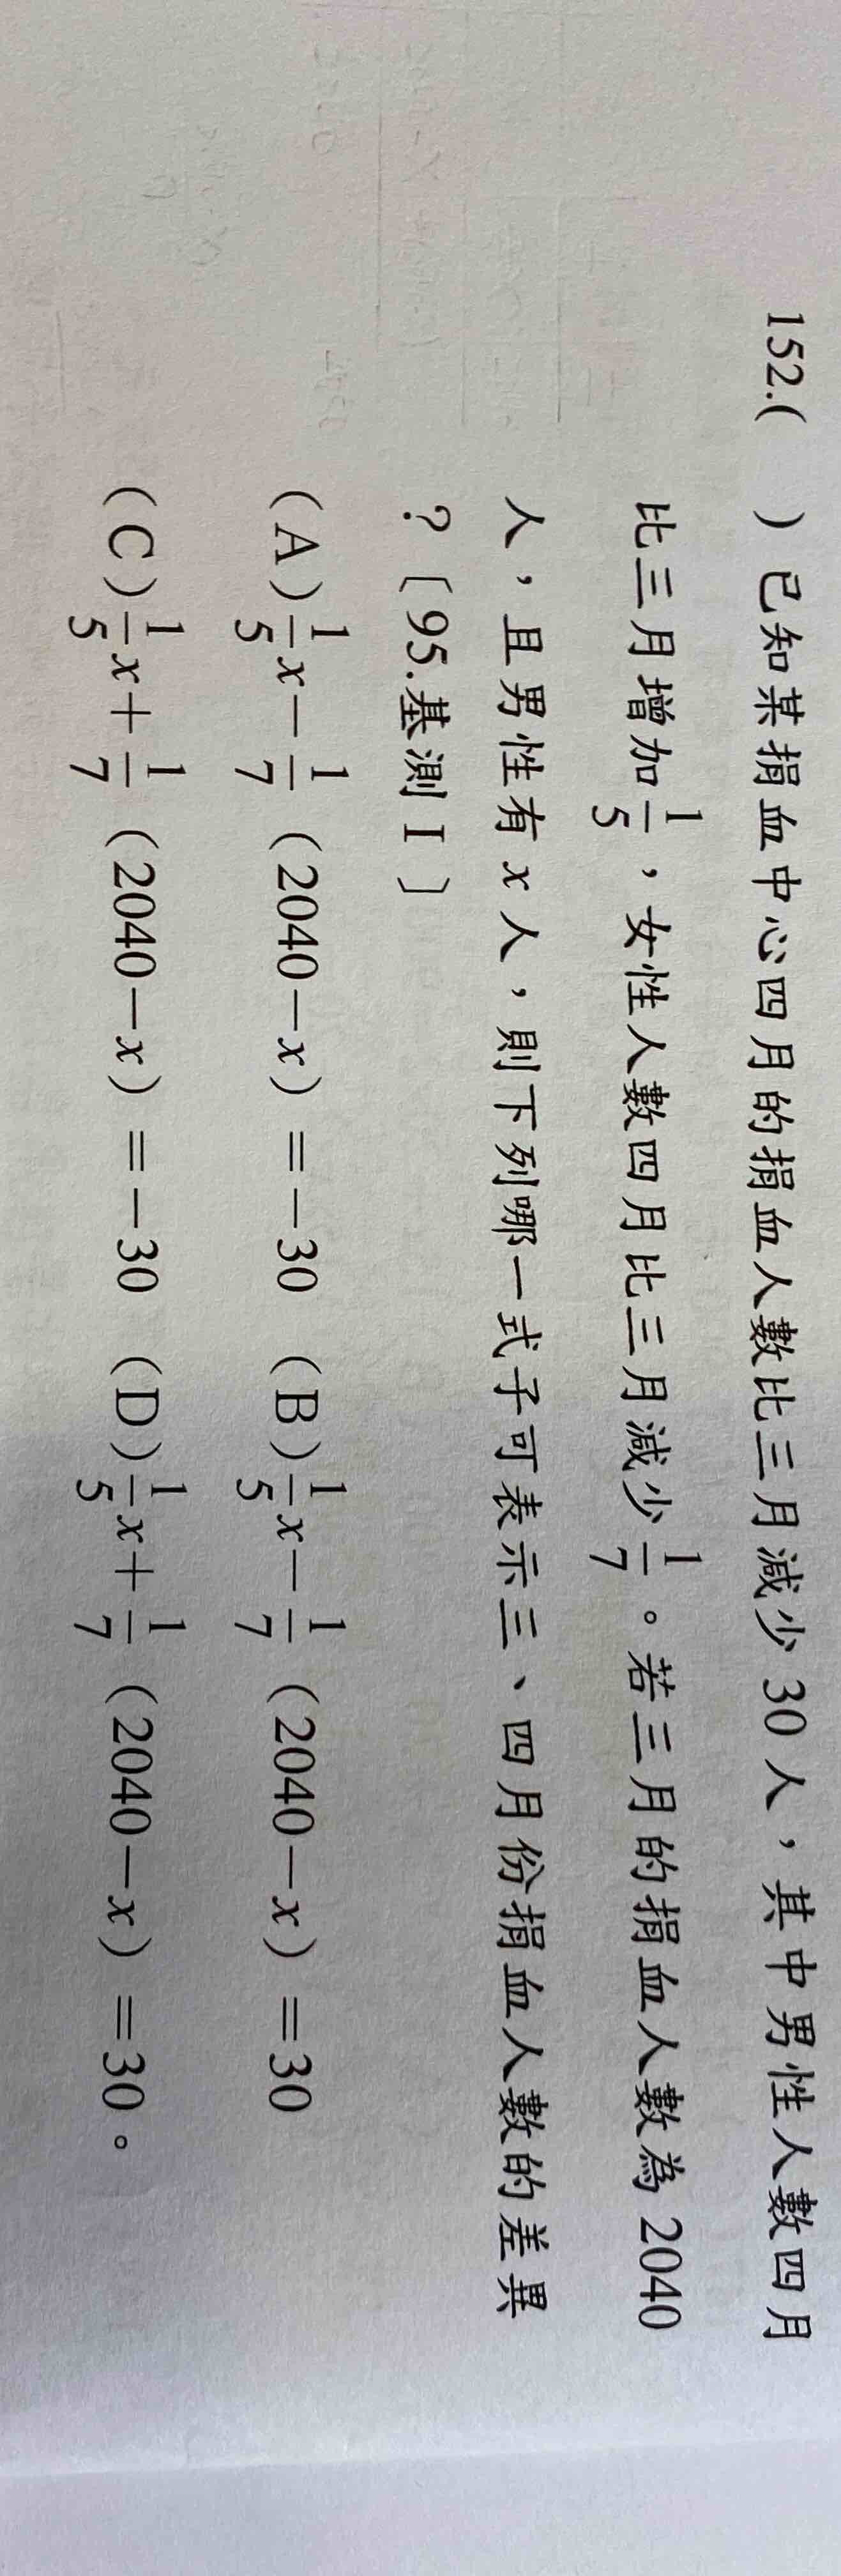 152.(　)已知某捐血中心四月的捐血人數比三月減少30人，其中男性人數四月
比三月增加1/5，女性人數四月比三月減少1/7。若三月的捐血人數為2040
人，且男性有x人，則下列哪一式子可表示三、四月份捐血人數的差異
？〔95.基測Ⅰ〕
（A）1/5x－1/7（2040－x）＝－30　（B）1/5x－1/7（2040－x）＝30
（C）1/5x＋1/7（2040－x）＝－30　（D）1/5x＋1/7（2040－x）＝30。